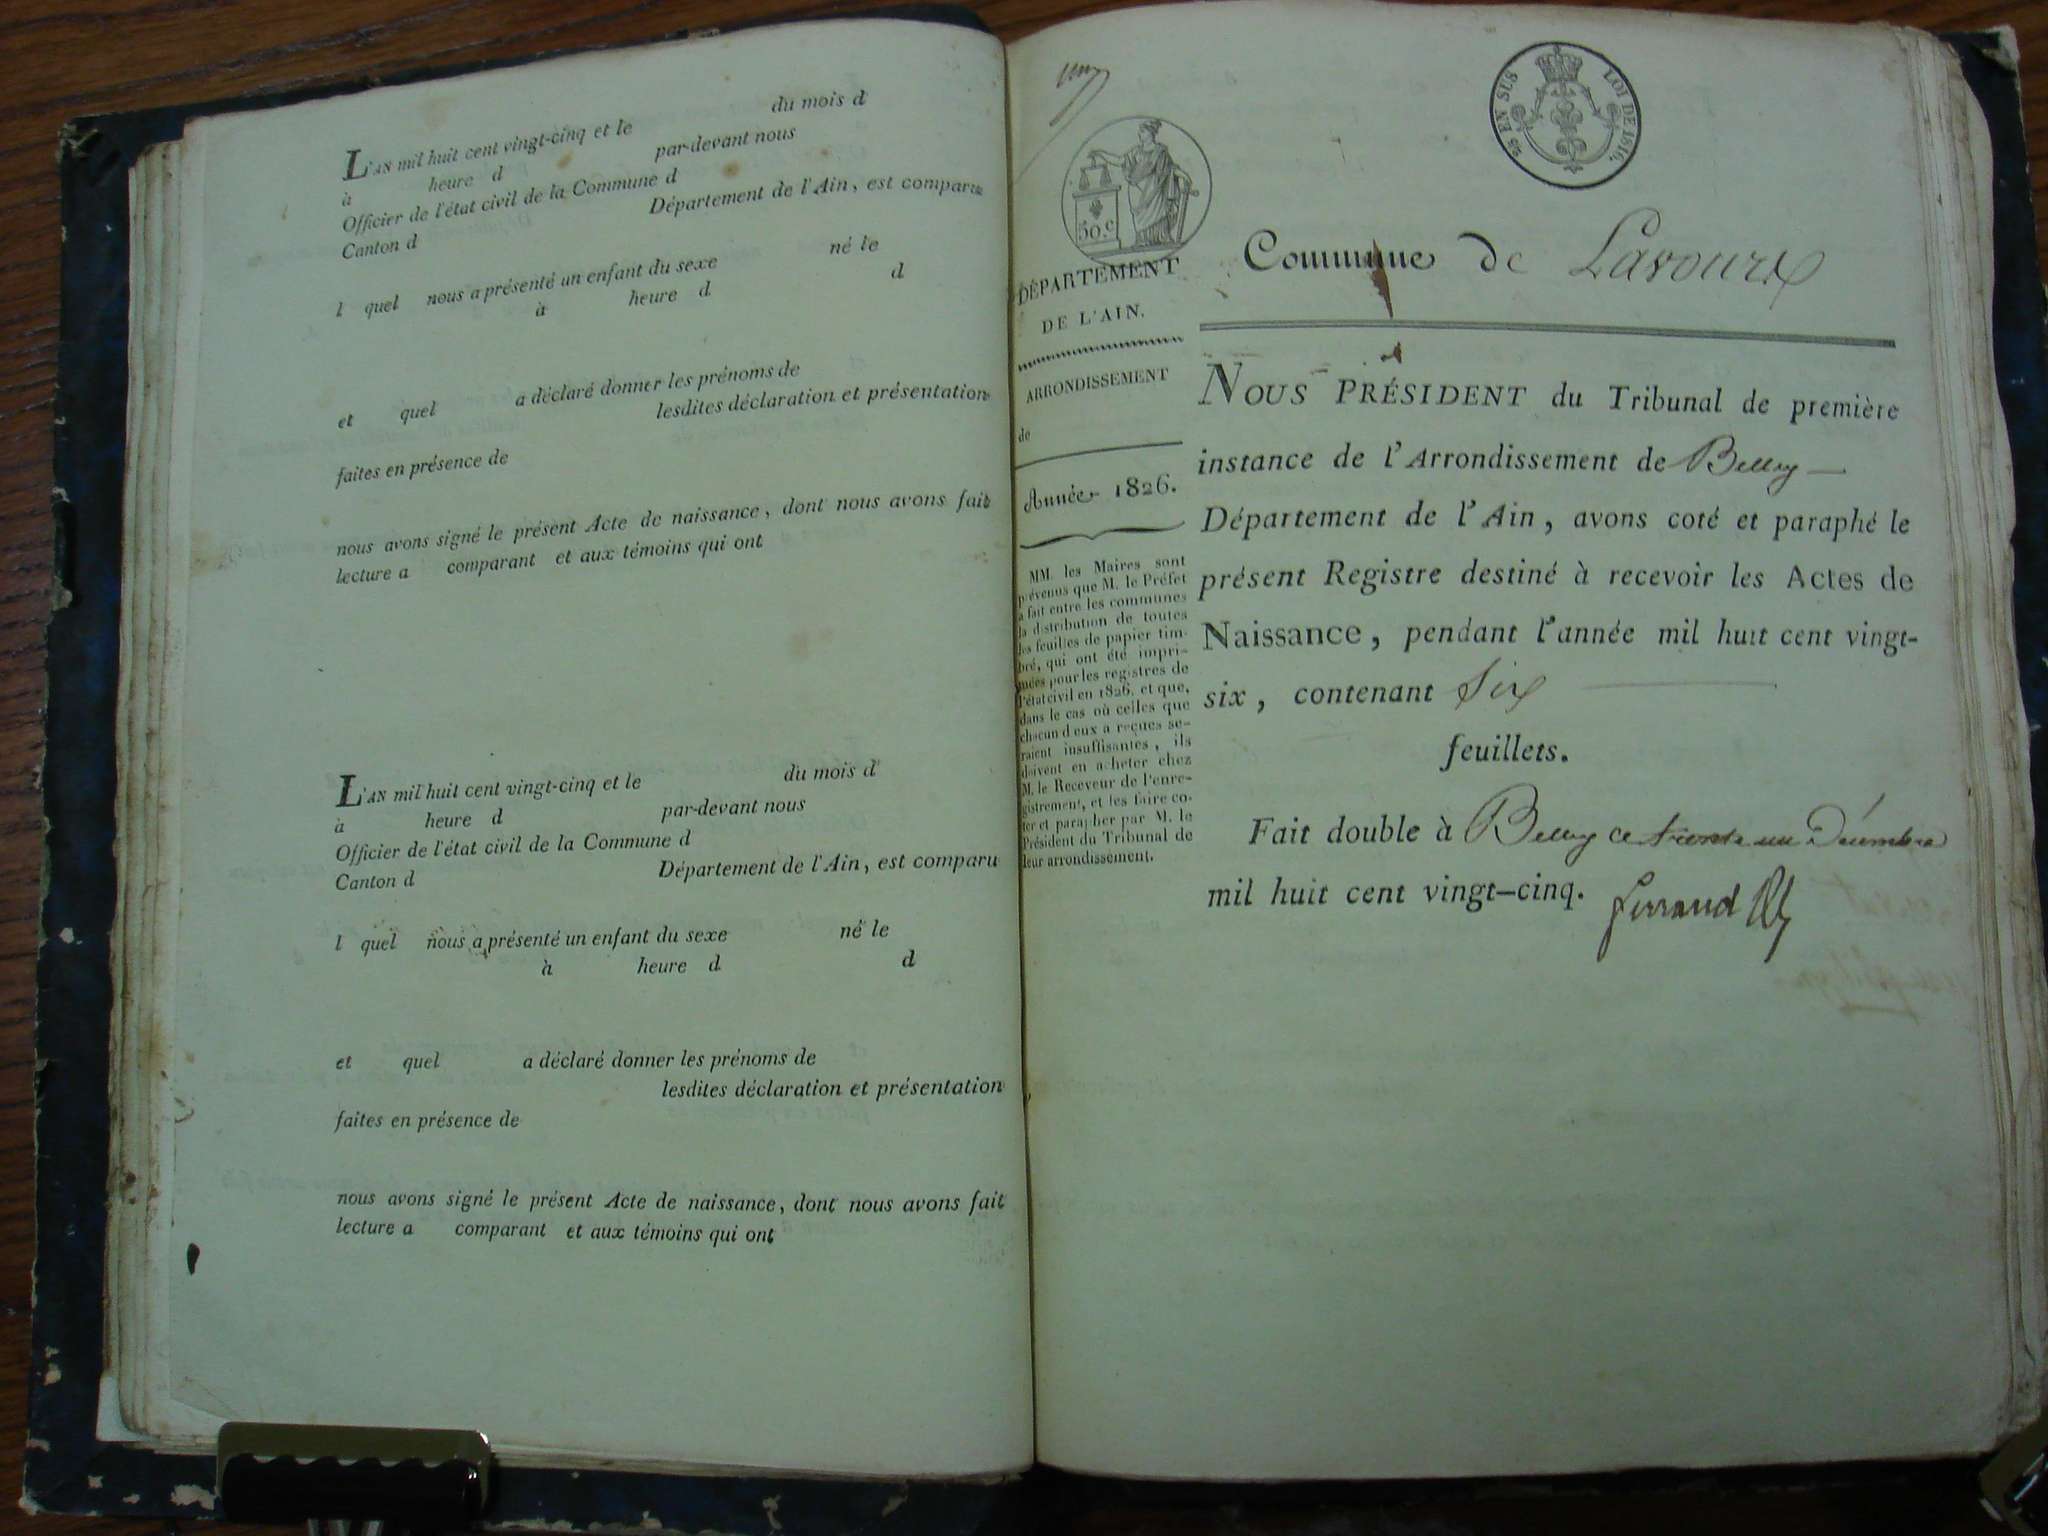 L'AN mil huit cent vingt-cinq et le du mois d
à heure d par-devant nous
Officier de l'état civil de la Commune d
Canton d Département de l'Ain, est comparu
l quel nous a présenté un enfant du sexe né le
à heure d d
et quel a déclaré donner les prénoms de
lesdites déclaration et présentation
faites en présence de
nous avons signé le présent Acte de naissance, dont nous avons fait
lecture a comparant et aux témoins qui ont
L'AN mil huit cent vingt-cinq et le du mois d
à heure d par-devant nous
Officier de l'état civil de la Commune d
Canton d Département de l'Ain, est comparu
l quel nous a présenté un enfant du sexe né le
à heure d d
et quel a déclaré donner les prénoms de
lesdites déclaration et présentation
faites en présence de
nous avons signé le présent Acte de naissance, dont nous avons fait
lecture a comparant et aux témoins qui ont
50.c
EN SUS LOI DE 1816.
DÉPARTEMENT
DE L'AIN.
ARRONDISSEMENT
de
Année 1826.
MM. les Maires sont
prévenus que M. le Préfet
a fait entre les communes
la distribution de toutes
les feuilles de papier tim-
bré, qui ont été impri-
mées pour les registres de
l'état civil en 1826, et que,
dans le cas où celles que
chacun d'eux a reçues se-
raient insuffisantes, ils
doivent en acheter chez
M. le Receveur de l'enre-
gistrement, et les faire co-
ter et parapher par M. le
Président du Tribunal de
leur arrondissement.
Commune de Lavoux
NOUS PRÉSIDENT du Tribunal de première
instance de l'Arrondissement de Belley
Département de l'Ain, avons coté et paraphé le
présent Registre destiné à recevoir les Actes de
Naissance, pendant l'année mil huit cent vingt-
six, contenant Six
feuillets.
Fait double à Belley ce trente un Décembre
mil huit cent vingt-cinq. Ferrand